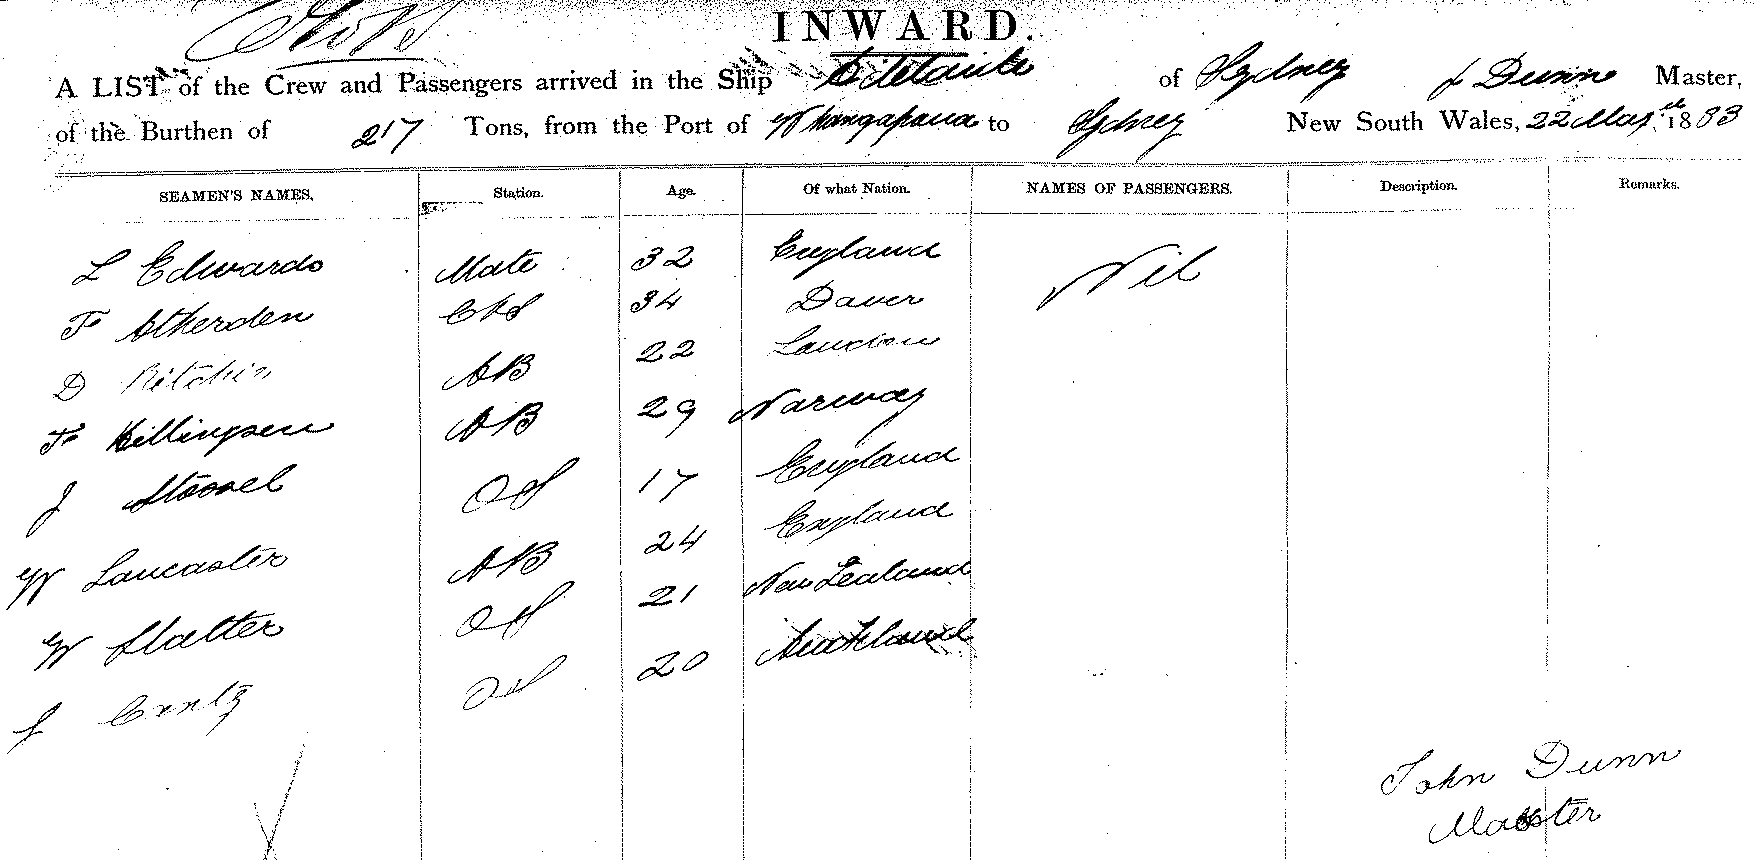 INWARD.
A LIST of the Crew and Passengers arrived in the Ship of Sydney J Dunn Master,
of the Burthen of 217 Tons, from the Port of Whangaparoa to Sydney New South Wales, 22 May 1883
SEAMEN'S NAMES. Station. Age. Of what Nation. NAMES OF PASSENGERS. Description. Remarks.
L Edwards Mate 32 England Nil
F Atherden 34 Dover
D 22 London
F AB 29 Norway
J OS 17 England
W Lancaster AB 24 England
W Slatter OS 21 New Zealand
J OS 20 Auckland
John Dunn
Master